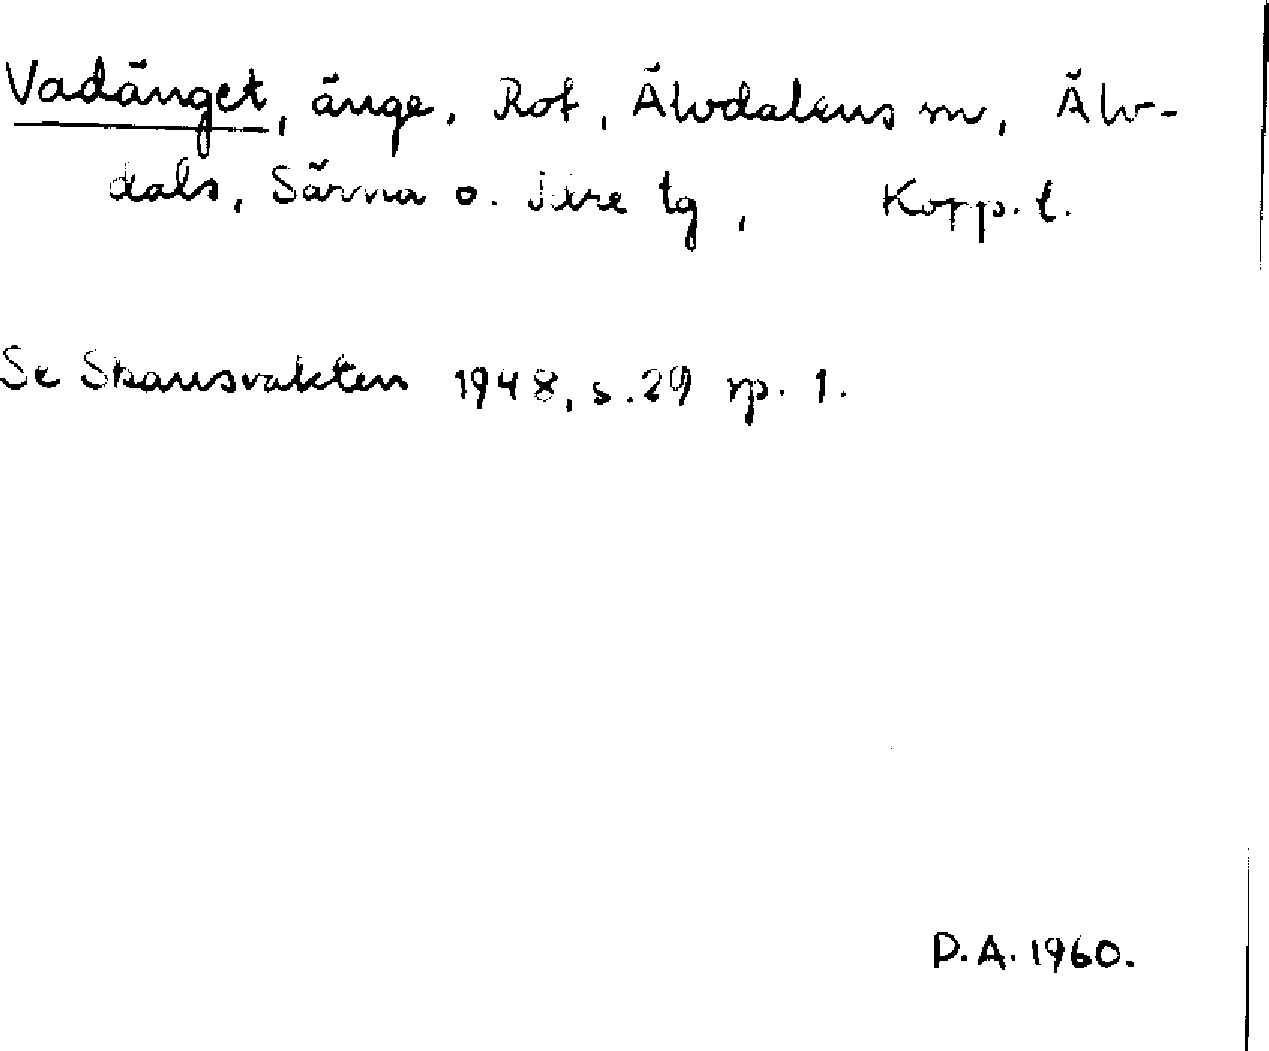 Vadänget, änge, Rot, Älvdalens sn, Älv-
dals, Särna o. Idre tg, Kopp. l.
Se Skansvakten 1948, s. 29 sp. 1.
D.A. 1960.